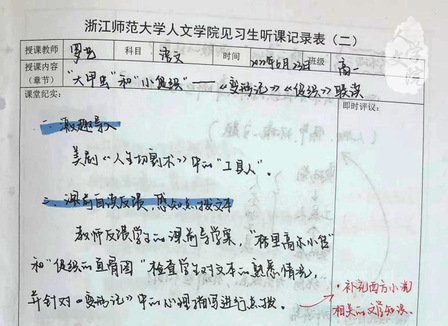 浙江师范大学人文学院见习生听课记录表（二）
授课教师 罗 科目 语文 时间 2022年6月23日 班级 高一
授课内容（章节） “大甲虫”和“小促织”——《变形记》《促织》联读
课堂纪实： 即时评议：
一、激趣导入
美剧《人生切割术》中的“工具人”。
二、课前自读反馈，感知点拨文本
教师反馈学生的课前导学案，“格里高尔小传”
和“促织的直膏图”检查学生对文本的熟悉情况，
并针对《变形记》中的心理描写进行点拨。
·补充西方小说
相关的文学知识。